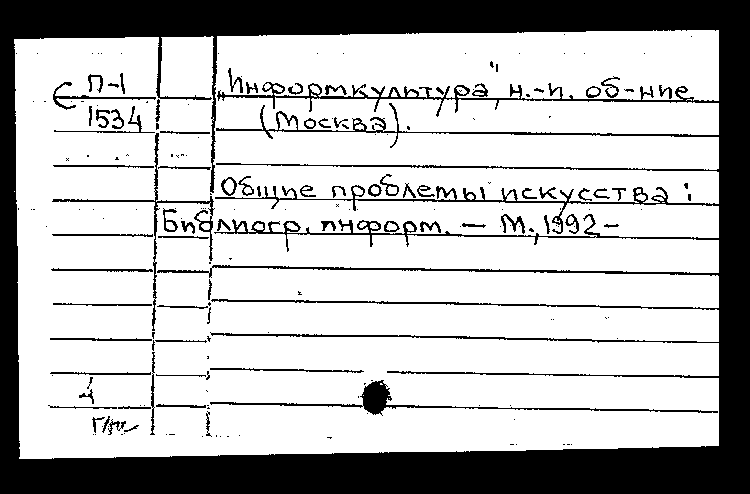 П-1
1534
„Информкультура", н.-и. об-ние
(Москва).
Общие проблемы искусства :
Библиогр. информ. — М., 1992-